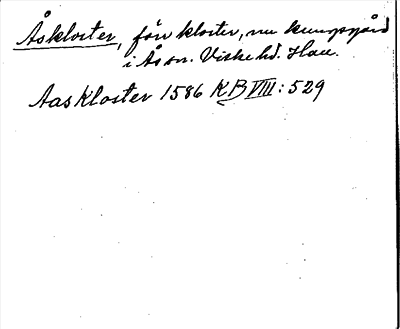 Åskloster, förr kloster, nu kungsgård
i Ås sn. Viske hd. Hall.
Aas Kloster 1586 KB VIII: 529